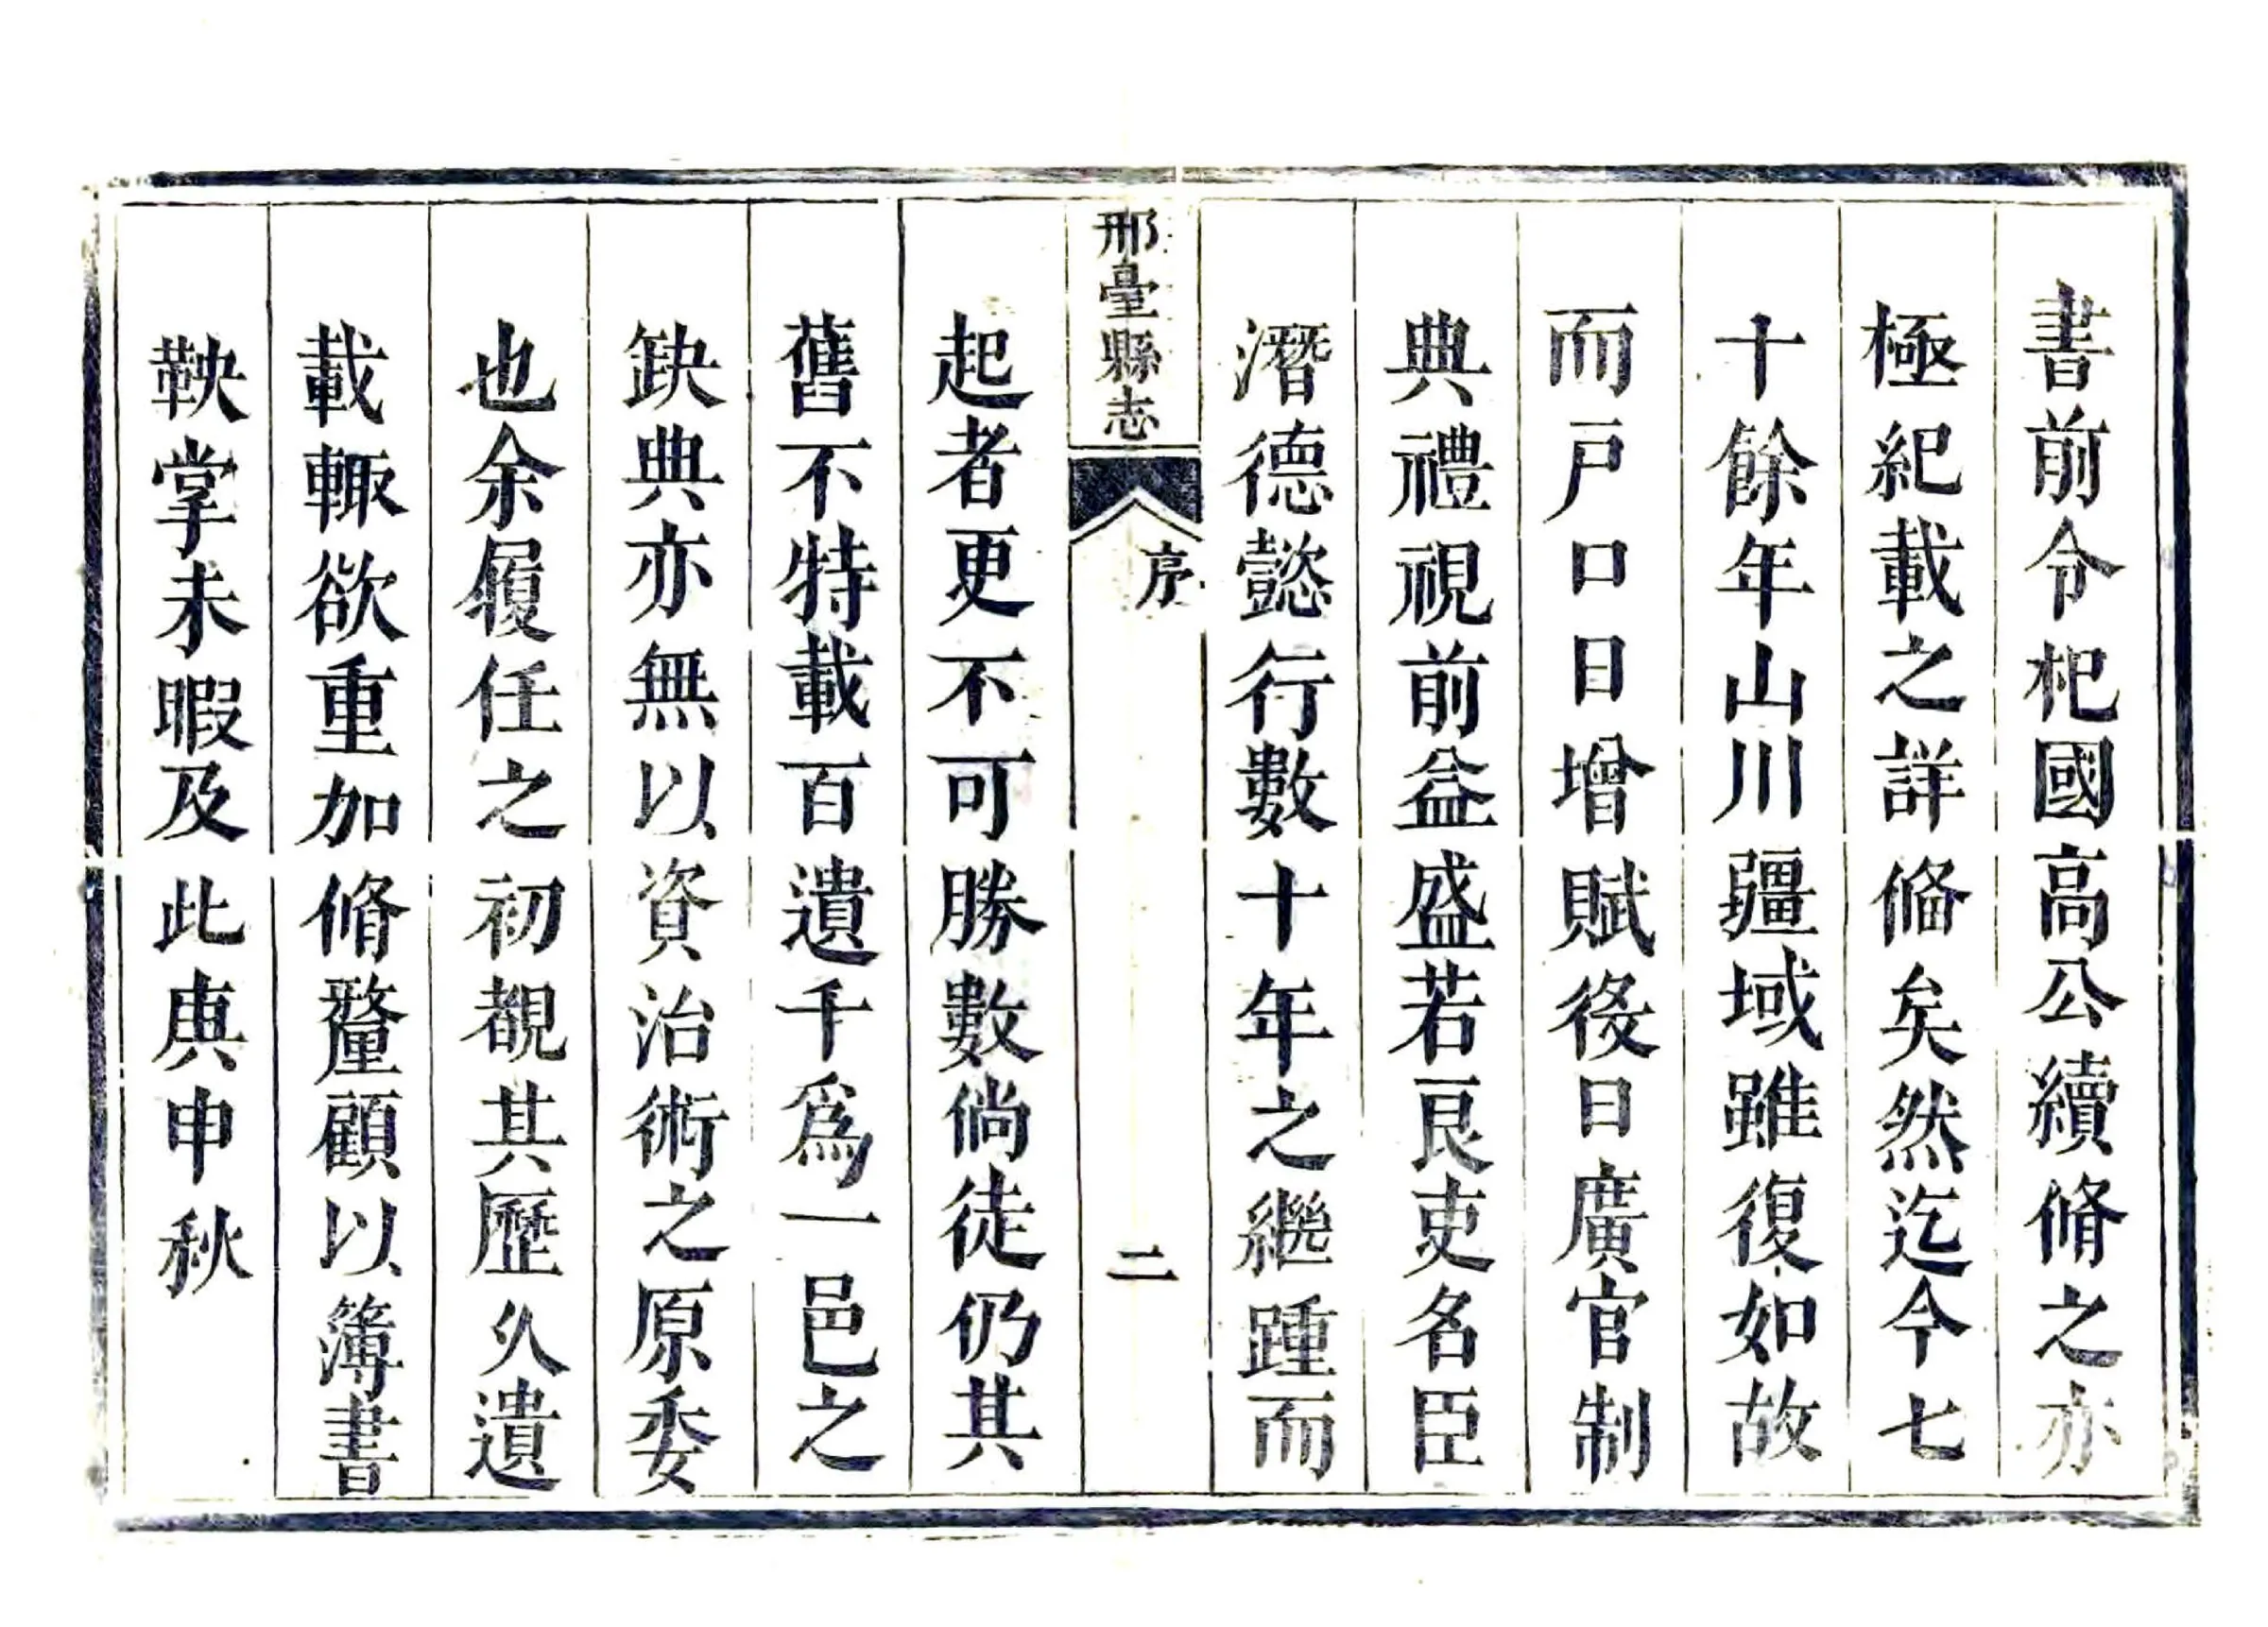 書前令杞國高公續脩之亦
極紀載之詳俻矣然迄今七
十餘年山川疆域雖復如故
而戸口日增賦役日廣官制
典禮視前益盛若良吏名臣
潛德懿行數十年之繼踵而
邢臺縣志
序
二
起者更不可勝數倘徒仍其
舊不特載百遺千爲一邑之
缺典亦無以資治術之原委
也余履任之初覩其歷久遺
載輙欲重加脩釐顧以簿書
鞅掌未暇及此庚申秋